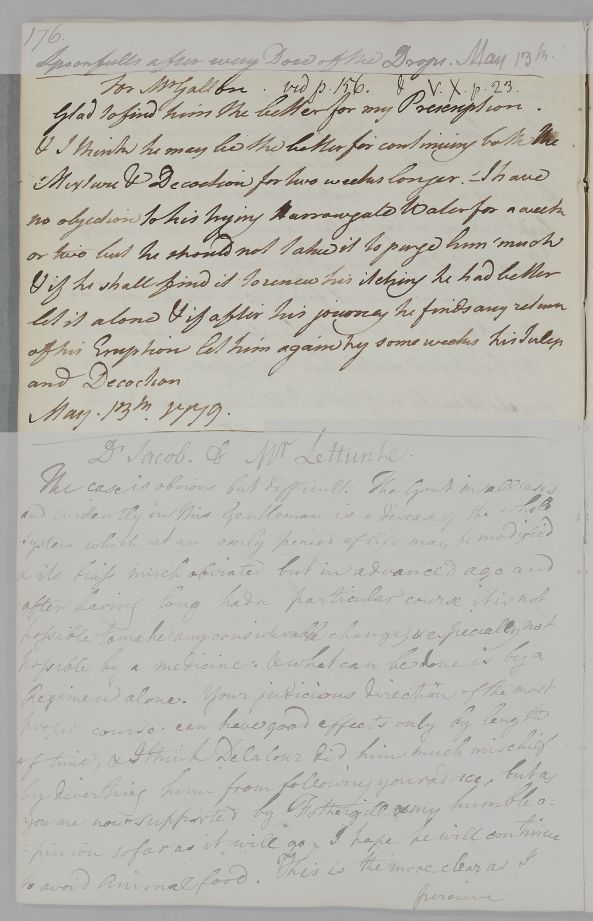 176.
Spoonfulls after every Dose of the Drops. May 13th.
For Mr Gallon. vid p. 156. & V. X. p. 23.
Glad to find him the better for my Prescription.
& I think he may be the better for continuing both the
Mixture & Decoction for two weeks longer. I have
no objection to his trying Harrowgate Water for a week
or two but he should not take it to purge him much
& if he shall find it to renew his itching he had better
let it alone & if after his journey he finds any return
of his Eruption let him again try some weeks his Julep
and Decoction
May. 13th. 1779.
Dr Jacob. & Mr
The case is obvious but difficult. The Gout in all cases
and evidently in this Gentleman is a disease of the whole
System which at an early period of life may be modified
& its biass much obviated but in advanced age and
after having long had a particular course it is not
possible to make any considerable change, & especially not
possible by a medicine. & what can be done is by a
Regimen alone. Your judicious direction of the most
proper course can have good effects only by length
of time, & I think Delalour did him much mischief
by diverting him from following your advice, but as
you are now supported by Fothergill & my humble o=
=pinion so far as it will go I hope he will continue
to avoid Animal food. This is the more clear as I
perceive